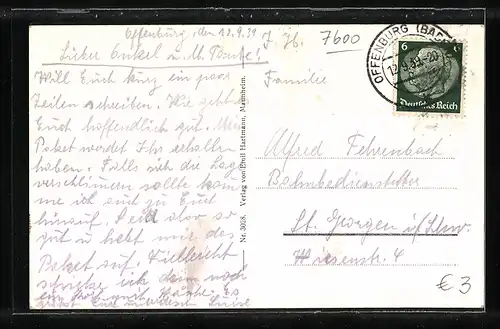 Offenburg, den 12.9.39
Lieber Onkel u. lb. Tante!
Will Euch kurz ein paar
Zeilen schreiben. Wie geht's
Euch hoffendlich gut. Mein
Paket werdet Ihr erhalten
haben. Falls sich die Lage
verschlimmern sollte kom
me ich auch zu Euch
hinauf. Seid also so
gut u hebt mir das
Paket auf. Vielleicht
schicke ich dann noch
ein
grüßt Euch
7600
OFFENBURG (BADEN)
12.9.39-20
6
Deutsches Reich
Familie
Alfred Fehrenbach
Bahnbediensteter
St. Georgen i/Schw.
Wiesenstr. 4
Nr. 3028. Verlag von Emil Hartmann, Mannheim.
€ 3